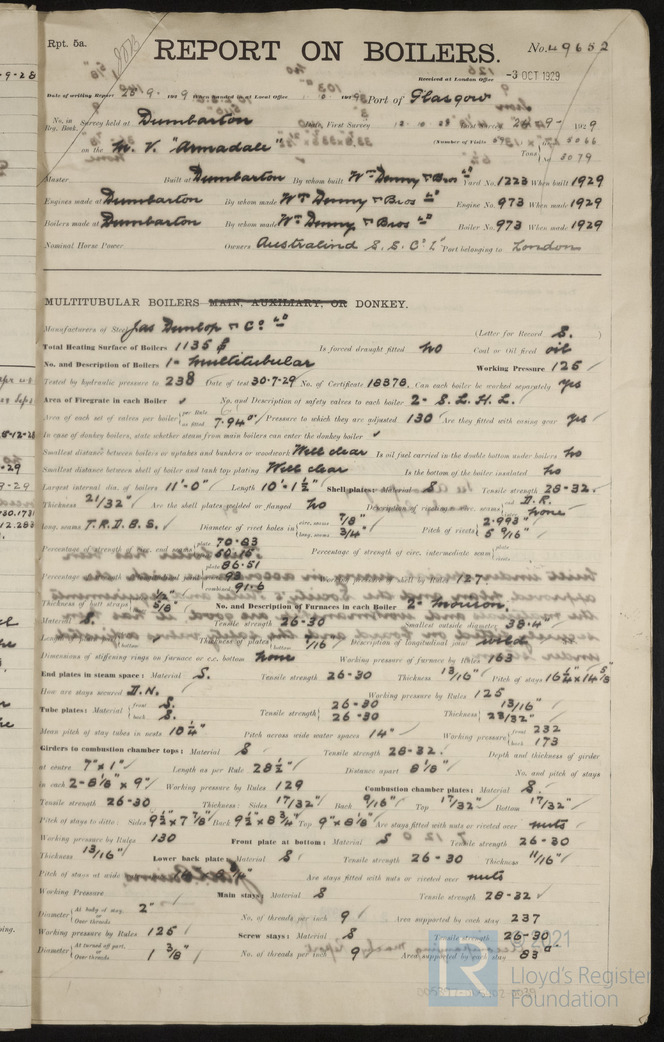 Rpt. 5a.
REPORT ON BOILERS.
No. 49652
Received at London Office
-3 OCT 1929
Date of writing Report 192 9 When handed in at Local Office Port of Glasgow
No. in Reg. Book. Survey held at Dumbarton Date, First Survey 192 9
on the M. V. "Armadale" (Number of Visits
Tons
Net 3079
Master Built at Dumbarton By whom built Wm Denny & Bros Ld Yard No. 1223 When built 1929
Engines made at Dumbarton By whom made Wm Denny & Bros Ld Engine No. 973 When made 1929
Boilers made at Dumbarton By whom made Wm Denny & Bros Ld Boiler No. 973 When made 1929
Nominal Horse Power Owners Australind S. S. Co Ld Port belonging to London
MULTITUBULAR BOILERS MAIN, AUXILIARY, OR DONKEY.
Manufacturers of Steel Jas Dunlop & Co Ld (Letter for Record S. )
Total Heating Surface of Boilers 1135 Is forced draught fitted No Coal or Oil fired oil
No. and Description of Boilers 1- Multitubular Working Pressure 125
Tested by hydraulic pressure to 238 Date of test 30-7-29 No. of Certificate 18378 Can each boiler be worked separately yes
Area of Firegrate in each Boiler ✓ No. and Description of safety valves to each boiler 2- S. L. H. L.
Area of each set of valves per boiler per Rule as fitted 7.94 Pressure to which they are adjusted 130 Are they fitted with easing gear yes
In case of donkey boilers, state whether steam from main boilers can enter the donkey boiler ✓
Smallest distance between boilers or uptakes and bunkers or woodwork Well clear Is oil fuel carried in the double bottom under boilers No
Smallest distance between shell of boiler and tank top plating Well clear Is the bottom of the boiler insulated No
Largest internal dia. of boilers 11'-0" Length 10'-1½" Shell plates: Material S Tensile strength 28-32.
Thickness 21/32" Are the shell plates welded or flanged No Description of riveting: circ. seams end D.R. None
long. seams T.R.D.B.S. Diameter of rivet holes in circ. seams 7/8" long. seams 3/4" Pitch of rivets 2.993" 5 9/16"
Percentage of strength of circ. end seams plate 70.83 Percentage of strength of circ. intermediate seam plate
Percentage plate 86.51
combined 91.6 127
Thickness of butt straps 1/2" 5/8" No. and Description of Furnaces in each Boiler 2- Morison.
Material S. Tensile strength 26-30 Smallest outside diameter 38.4
Thickness of plates 7/16" Description of longitudinal joint weld
Dimensions of stiffening rings on furnace or c.c. bottom None Working pressure of furnace by Rules 163
End plates in steam space: Material S. Tensile strength 26-30 Thickness 13/16" Pitch of stays 16¼ x 14 5/8
How are stays secured D.N. Working pressure by Rules 125
Tube plates: Material front S. back S. Tensile strength 26-30 26-30 Thickness 13/16" 23/32"
Mean pitch of stay tubes in nests 10¼" Pitch across wide water spaces 14" Working pressure front 232 back 173
Girders to combustion chamber tops: Material S Tensile strength 28-32. Depth and thickness of girder
at centre 7" x 1" Length as per Rule 28½" Distance apart 8 1/8" No. and pitch of stays
in each 2-8 1/8" x 9" Working pressure by Rules 129 Combustion chamber plates: Material S.
Tensile strength 26-30 Thickness: Sides 17/32" Back 9/16" Top 17/32" Bottom 17/32"
Pitch of stays to ditto: Sides 9½" x 7 7/8" Back 9½" x 8¾" Top 9" x 8 1/8" Are stays fitted with nuts or riveted over nuts
Working pressure by Rules 130 Front plate at bottom: Material S Tensile strength 26-30
Thickness 13/16" Lower back plate: Material S Tensile strength 26-30 Thickness 11/16"
Pitch of stays at wide Are stays fitted with nuts or riveted over nuts
Working Pressure Main stays: Material S Tensile strength 28-32
Diameter At body of stay, or Over threads 2" No. of threads per inch 9 Area supported by each stay 237
Working pressure by Rules 125 Screw stays: Material S Tensile strength 26-30
Diameter At turned off part, or Over threads 1 3/8" No. of threads per inch 9 Area supported by each stay 83
© 2021
LR
Lloyd's Register
Foundation